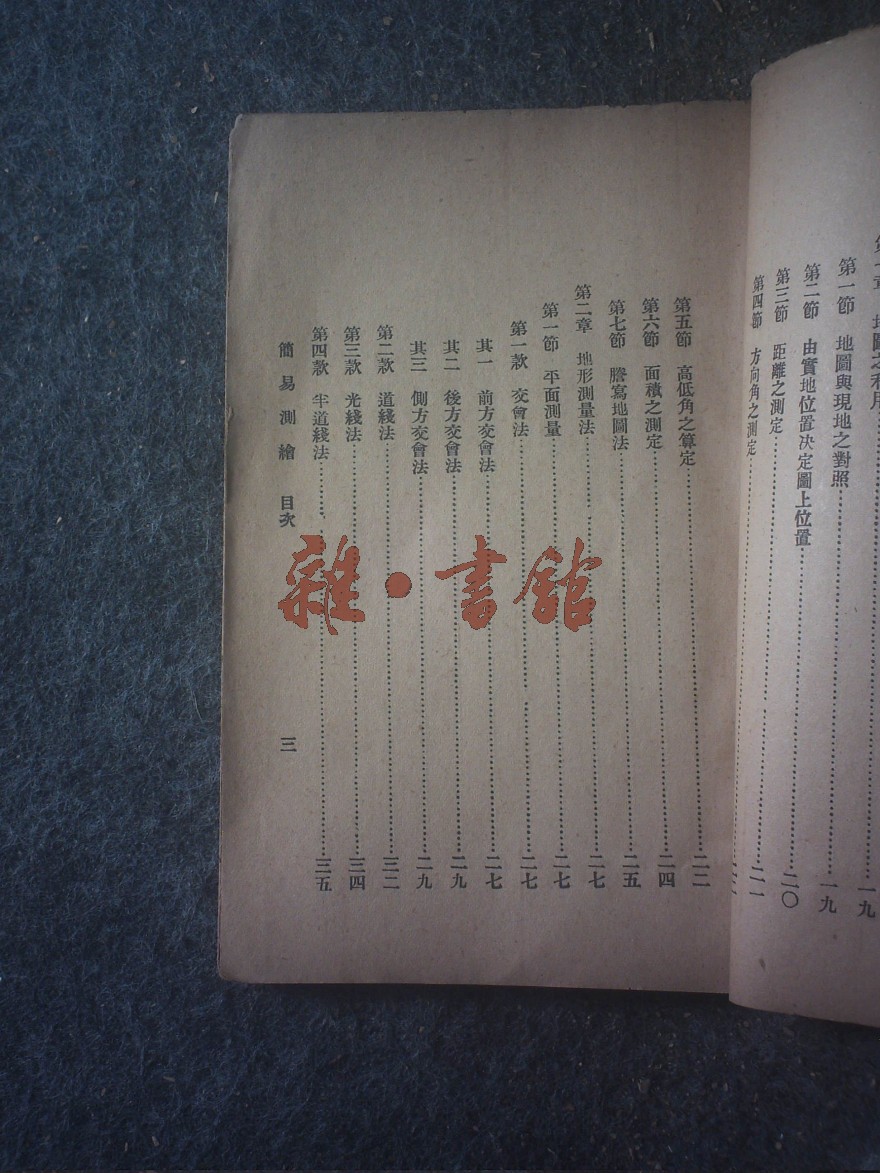 地圖之利用……一九
第一節 地圖與現地之對照……一九
第二節 由實地位置決定圖上位置……二〇
第三節 距離之測定……二一
第四節 方向角之測定……
第五節 高低角之算定……二二
第六節 面積之測定……二四
第七節 謄寫地圖法……二五
第二章 地形測量法……二七
第一節 平面測量……二七
第一款 交會法……二七
其一 前方交會法……二七
其二 後方交會法……二九
其三 側方交會法……二九
第二款 道綫法……三二
第三款 光綫法……三四
第四款 半道綫法……三五
簡易測繪 目次 三
雜·書館